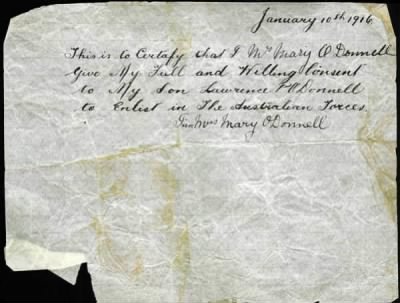 January 10th 1916
This is to Certafy that I Mrs Mary O Donnell
Give My Full and Willing Consent
to My Son Lawrence O'Donnell
to Enlist in The Australian Forces.
Mrs Mary O Donnell